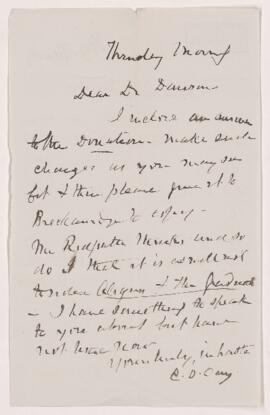 Thursday Morng
Dear Dr Dawson
I inclose an answer
to the Donation. Make such
changes as you may see
fit & then please give it to
Breckenridge to copy -
Mr Redpath thinks and so
do I that it is as well not
to
- I have something to speak
to you about but have
not time now
Yours truly, in haste
C. D. Day